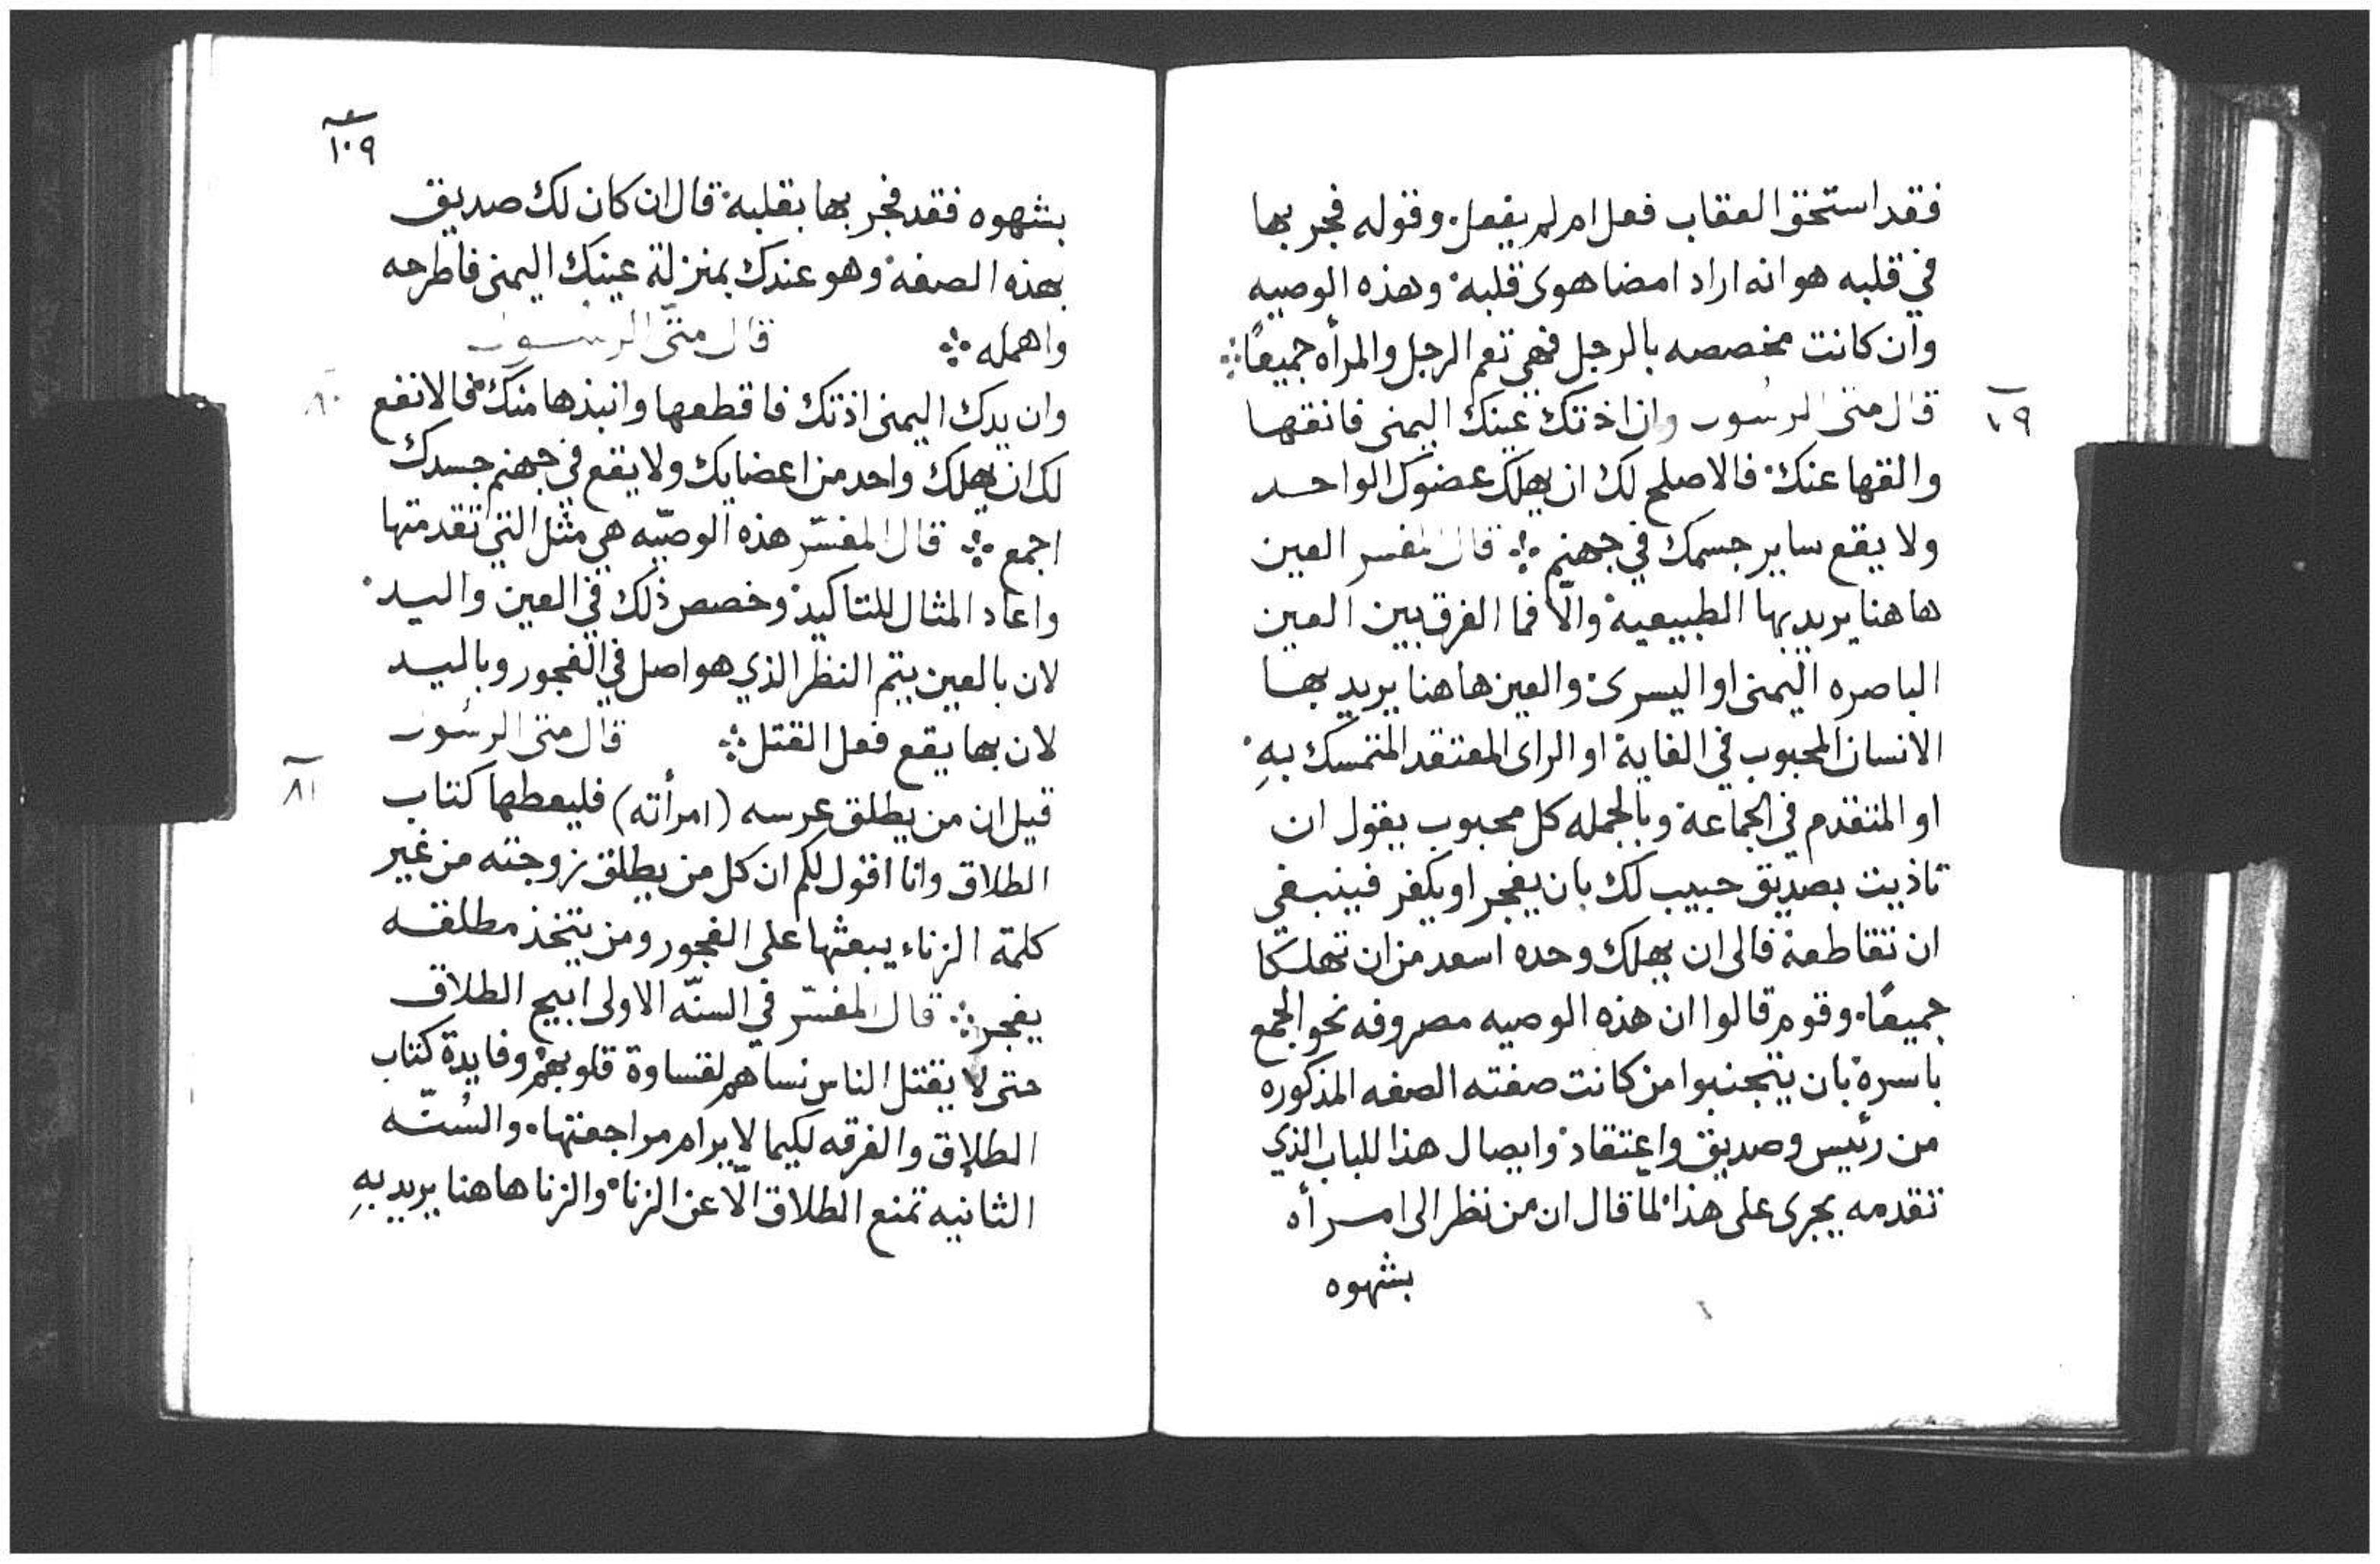 فقد استحق العقاب فعل ام لم يفعل. وقوله فجر بها
في قلبه هو انه اراد امضا هوى قلبه وهذه الوصيه
وان كانت مخصصه بالرجل فهي تعم الرجل والمرأه جميعًا
قال متى الرسول وان اذتك عينك اليمنى فانقها
والقها عنك فالاصلح لك ان يهلك عضوك الواحد
ولا يقع ساير جسمك في جهنم قال المفسر العين
هاهنا يريد بها الطبيعية والّا فما الفرق بين العين
الباصره اليمنى او اليسرى والعين هاهنا يريد بها
الانسان المحبوب في الغاية او الراى المعتقد المتمسك بهِ
او المتقدم في الجماعة وبالجمله كل محبوب يقول ان
تاذيت بصديق حبيب لك بان يفجر او يكفر فينبغي
ان تقاطعه فالى ان يهلك وحده اسعد من ان تهلكا
جميعًا. وقوم قالوا ان هذه الوصيه مصروفه نحو الجمع
باسره بان يتجنبوا من كانت صفته الصفه المذكوره
من رئيس وصديق واعتقاد وايصال هذا للباب الذي
تقدمه يجرى على هذا لما قال ان من نظر الى امرأه
بشهوه
١٠٩
بشهوه فقد فجر بها بقلبه قال ان كان لك صديق
بهذه الصفه وهو عندك بمنزلة عينك اليمنى فاطرحه
واهمله قال متّى الرسول
وان يدك اليمنى اذتك فاقطعها وانبذها منك فالانفع ٨٠
لك ان يهلك واحد من اعضايك ولا يقع في جهنم جسدك
اجمع قال المفسّر هذه الوصيّه هي مثل التي تقدمتها
واعاد المثال للتاكيد وخصص ذلك في العين واليد
لان بالعين يتم النظر الذي هو اصل في الفجور وباليد
لان بها يقع فعل القتل قال متى الرسول
قيل ان من يطلق عرسه (امرأته) فليعطها كتاب ٨١
الطلاق وانا اقول لكم ان كل من يطلق زوجته من غير
كلمة الزناء يبعثها على الفجور ومن يتخذ مطلقه
يفجر قال المفسّر في السنّه الاولى ابيح الطلاق
حتى لا يقتل الناس نساهم لقساوة قلوبهم وفايدة كتاب
الطلاق والفرقه لكيما لا يرام مراجعتها. والسُنّه
الثانيه تمنع الطلاق الّا عن الزنا والزنا هاهنا يريد بهِ